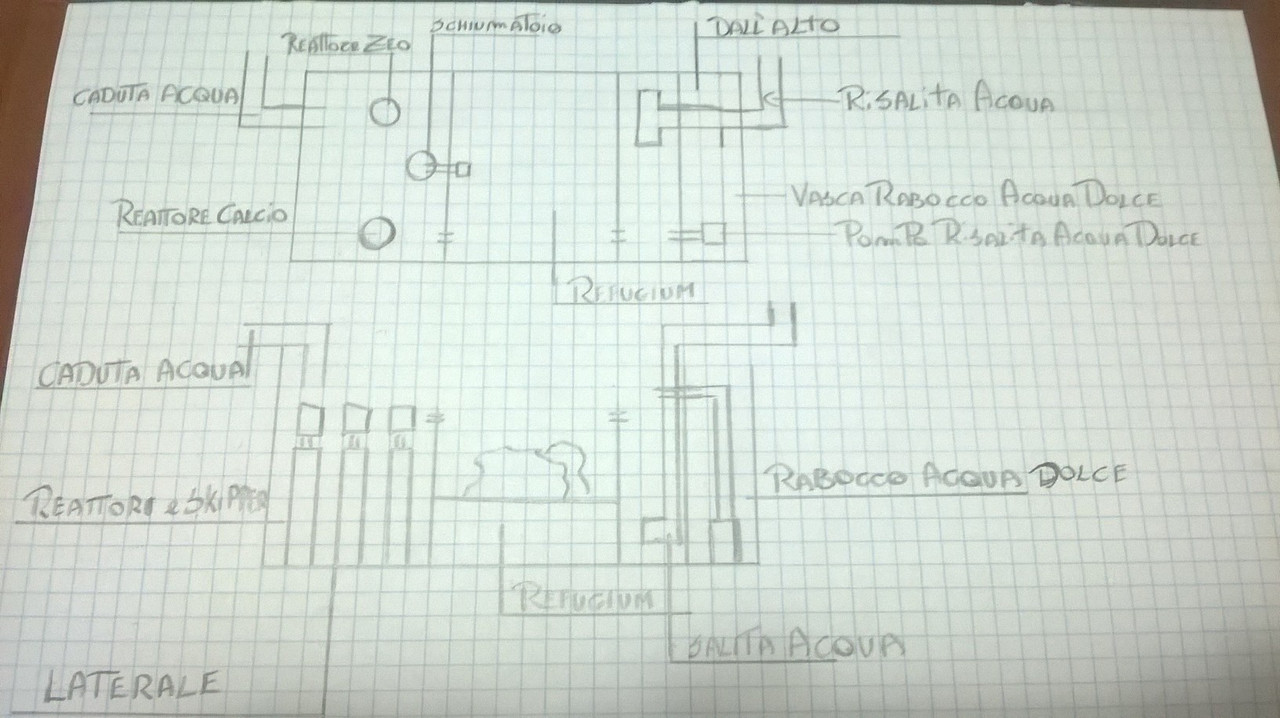 SCHIUMATOIO
DALL'ALTO
REATTORE ZEO
CADUTA ACQUA
RISALITA ACQUA
VASCA RABOCCO ACQUA DOLCE
REATTORE CALCIO
POMPA RISALITA ACQUA DOLCE
REFUGIUM
CADUTA ACQUA
RABOCCO ACQUA DOLCE
REATTORI e
REFUGIUM
SALITA ACQUA
LATERALE